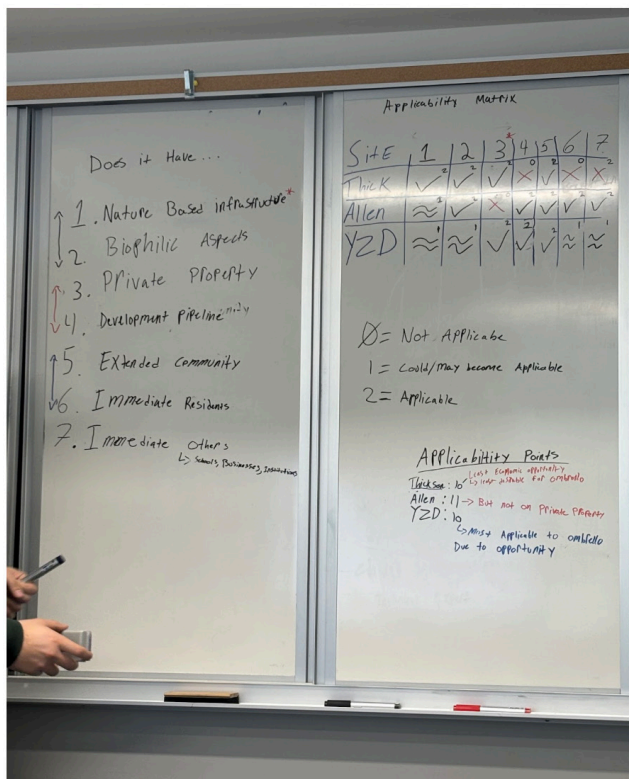 Does it Have...
1. Nature Based infrastructure*
2. Biophilic Aspects
3. Private Property
4. Development Pipeline
5. Extended Community
6. Immediate Residents
7. Immediate others
↳ Schools, Businesses, Institutions
Applicability Matrix
*
SitE 1 2 3 4 5 6 7
Thick ✓2 ✓2 ✓2 X0 ✓2 X0 X2
Allen ≈1 ✓2 X0 ✓2 ✓2 ✓2 ✓2
YZD ≈1 ≈1 ✓2 ✓2 ✓2 ≈1 ≈1
0 = Not Applicabe
1 = Could/may become Applicable
2 = Applicable
Applicability Points
Least Economic opportunity
Thickson: 10 ↳ least suitable for ombrello
Allen : 11 → But not on Private Property
YZD: 10
↳ Most Applicable to ombrello
Due to opportunity